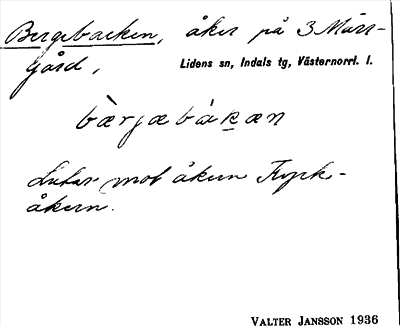 Bergebacken, åker på 3 Mårs-
gård,
Lidens sn, Indals tg, Västernorrl. l.
bæ̀rjæbàkæn
Lutar mot åkern Kyrk-
åkern.
VALTER JANSSON 1936